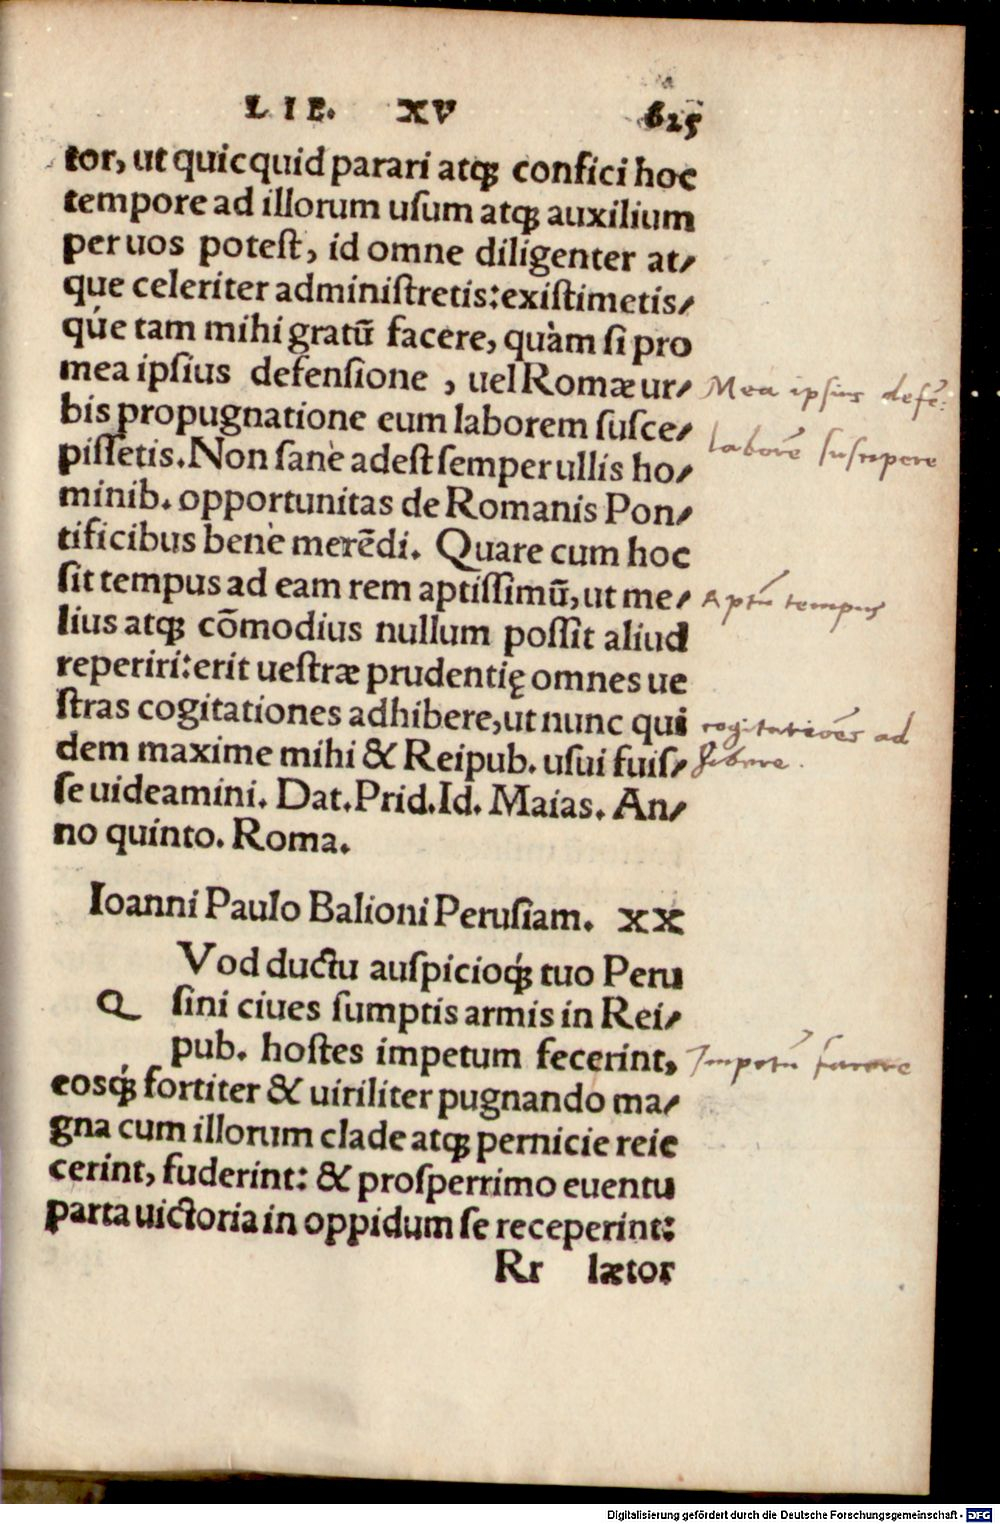 LIB. XV 625
tor, ut quicquid parari atq; confici hoc
tempore ad illorum usum atq; auxilium
per uos potest, id omne diligenter at⸗
que celeriter administretis: existimetis⸗
qúe tam mihi gratū facere, quàm si pro
mea ipsius defensione, uel Romæ ur⸗
bis propugnatione eum laborem susce⸗
pissetis. Non sanè adest semper ullis ho⸗
minib. opportunitas de Romanis Pon⸗
tificibus benè merēdi. Quare cum hoc
sit tempus ad eam rem aptissimū, ut me⸗
lius atq; cōmodius nullum possit aliud
reperiri: erit uestræ prudentię omnes ue
stras cogitationes adhibere, ut nunc qui
dem maxime mihi & Reipub. usui fuis⸗
se uideamini. Dat. Prid. Id. Maias. An⸗
no quinto. Roma.
Ioanni Paulo Balioni Perusiam. XX
QVod ductu auspicioq́; tuo Peru
sini ciues sumptis armis in Rei⸗
pub. hostes impetum fecerint,
eosq́; fortiter & uiriliter pugnando ma⸗
gna cum illorum clade atq; pernicie reie
cerint, fuderint: & prosperrimo euentu
parta uictoria in oppidum se receperint:
Rr lætor
Mea ipsius defē:
laborē suscipere
Aptū tempus
cogitationēs ad
hibere.
Impetū facere
Digitalisierung gefördert durch die Deutsche Forschungsgemeinschaft - DFG